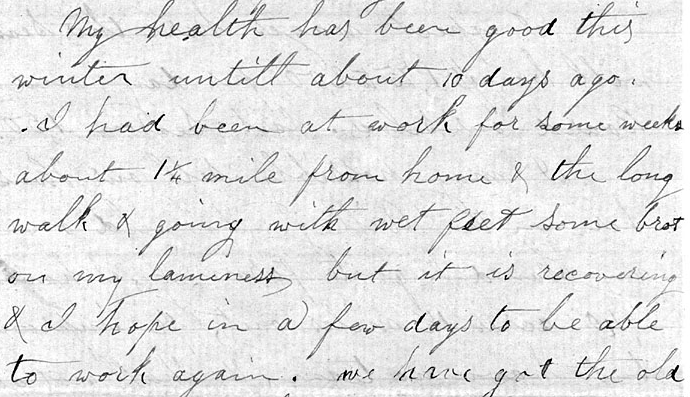 My health has been good this
winter untill about 10 days ago.
. I had been at work for some weeks
about 1¼ mile from home & the long
walk & going with wet feet some brot
on my lameness, but it is recovering
& I hope in a few days to be able
to work again. we have got the old